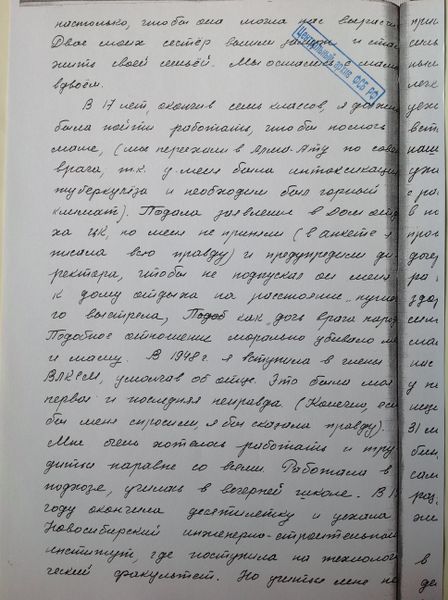 настолько, чтобы она могла нас вырастить
Двое моих сестёр вышли замуж и стали
жить своей семьёй. Мы остались с мамой
вдвоём.
Центральный архив ФСБ РФ
В 17 лет, окончив семь классов, я должна
была пойти работать, чтобы помочь
маме, (мы переехали в Алма-Ату по сове
врача, т.к. у меня была интоксикация
туберкулёза и необходим был горный
климат). Подала заявление в Дом отды
ха ЦК, но меня не приняли (в анкете я
писала всю правду) и предупредили ди
ректора, чтобы не подпускал он меня
к дому отдыха на расстояние „пушечно
го выстрела, Подоб как дочь врага народ
Подобное отношение морально убивало ме
и маму. В 1948 г. я вступила в члены
ВЛКСМ, умолчав об отце. Это была моя
первая и последняя неправда. (Конечно, если
бы меня спросили, я бы сказала правду).
Мне очень хотелось работать и тру
диться наравне со всеми. Работала в
подхозе, училась в вечерней школе. В 19
году окончила десятилетку и уехала
Новосибирский инженерно-строительный
институт, где поступила на технологи
ческий факультет. Но учиться мне не